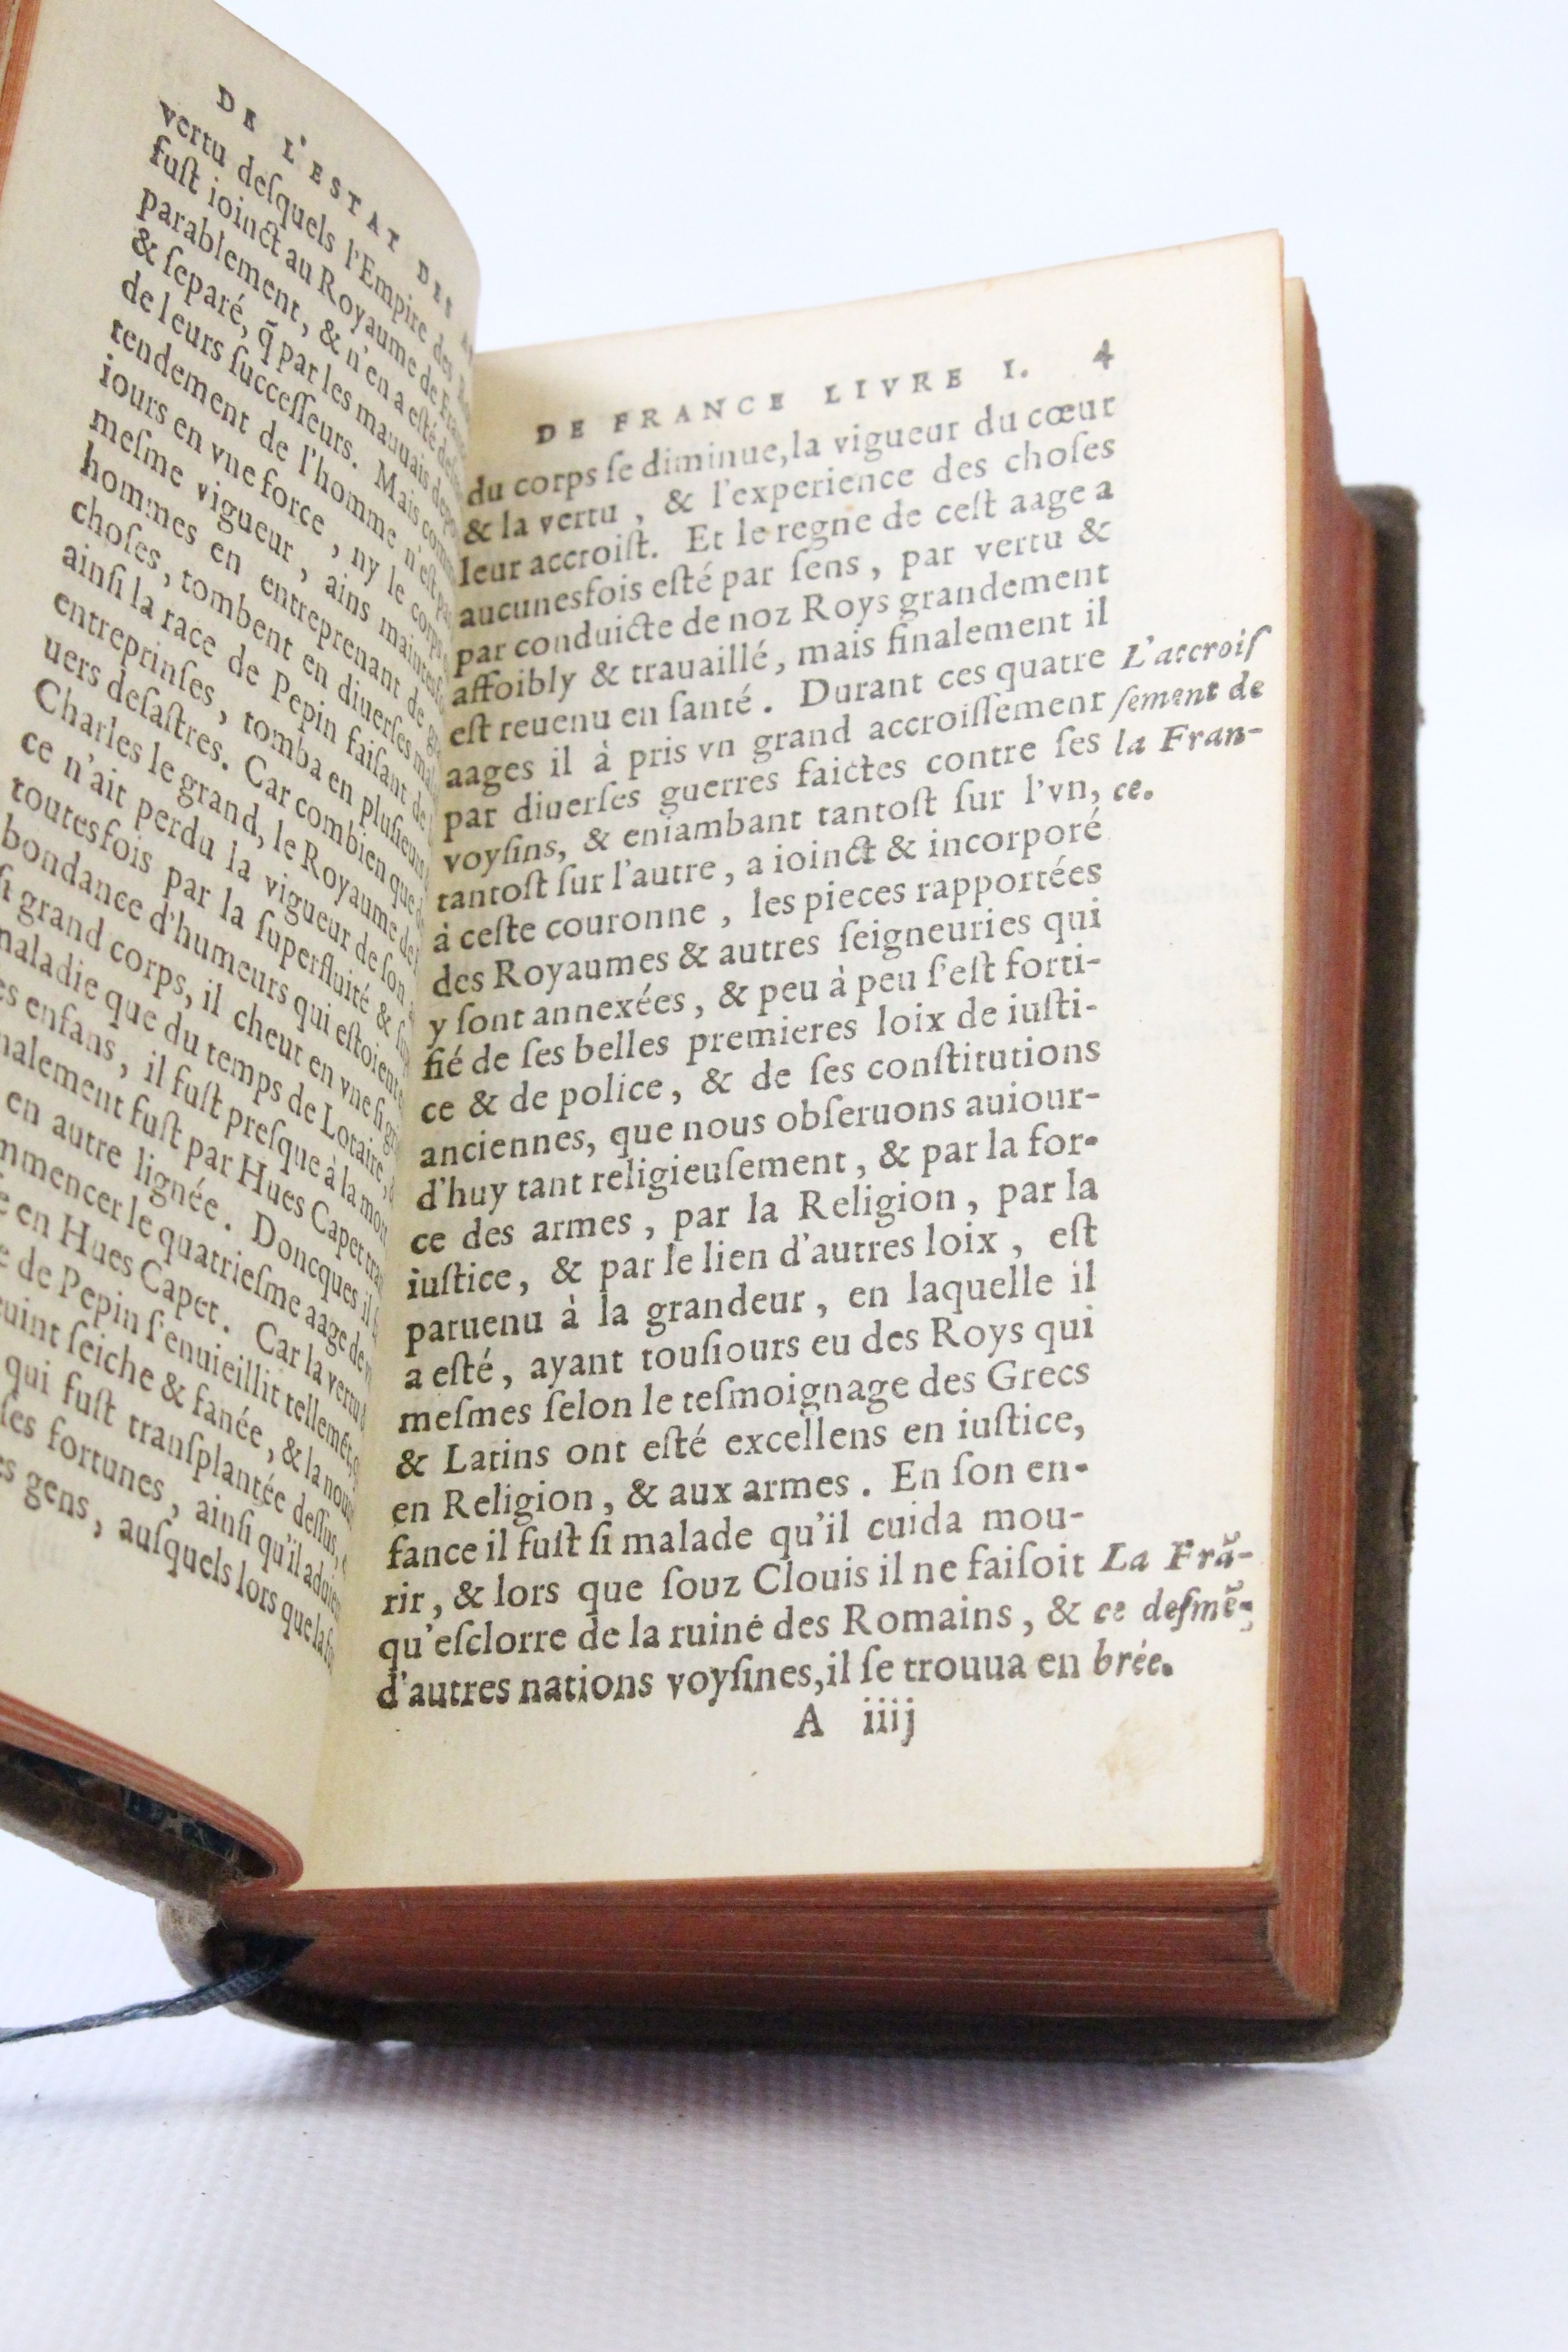 DE L'ESTAT DES
vertu deſquels l'Empire des
fuſt ioinct au Royaume de
parablement, & n'en a eſté
& ſeparé, q̃ par les mauuais
de leurs ſucceſſeurs. Mais
tendement de l'homme n'eſt
iours en vne force, ny le corps
meſme vigueur, ains
hommes en entreprenant de
choſes, tombent en diuerſes
ainſi la race de Pepin faiſant de
entreprinſes, tomba en
uers deſaſtres. Car combien que
Charles le grand, le Royaume
ce n'ait perdu la vigueur de ſon
toutesfois par la ſuperfluité &
bondance d'humeurs qui eſtoient
ſi grand corps, il cheut en vne ſi
maladie que du temps de Lotaire,
enfans, il fuſt preſque à la
nalement fuſt par Hues Capet
en autre lignée. Doncques il
mmencer le quatrieſme aage de
en Hues Capet. Car la vertu
de Pepin ſ'enuieillit tellemẽt,
uint ſeiche & fanée, & la
qui fuſt tranſplantée deſſus,
ſes fortunes, ainſi qu'il
gens, auſquels lors que
DE FRANCE LIVRE I. 4
du corps ſe diminue, la vigueur du cœur
& la vertu, & l'experience des choſes
leur accroiſt. Et le regne de ceſt aage a
aucunesfois eſté par ſens, par vertu &
par conduicte de noz Roys grandement
affoibly & trauaillé, mais finalement il
eſt reuenu en ſanté. Durant ces quatre
aages il à pris vn grand accroiſſement
par diuerſes guerres faictes contre ſes
voyſins, & eniambant tantoſt ſur l'vn,
tantoſt ſur l'autre, a ioinct & incorporé
à ceſte couronne, les pieces rapportées
des Royaumes & autres ſeigneuries qui
y ſont annexées, & peu à peu ſ'eſt forti-
fié de ſes belles premieres loix de iuſti-
ce & de police, & de ſes conſtitutions
anciennes, que nous obſeruons auiour-
d'huy tant religieuſement, & par la for-
ce des armes, par la Religion, par la
iuſtice, & par le lien d'autres loix, eſt
paruenu à la grandeur, en laquelle il
a eſté, ayant touſiours eu des Roys qui
meſmes ſelon le teſmoignage des Grecs
& Latins ont eſté excellens en iuſtice,
en Religion, & aux armes. En ſon en-
fance il fuſt ſi malade qu'il cuida mou-
rir, & lors que ſouz Clouis il ne faiſoit
qu'eſclorre de la ruine des Romains, &
d'autres nations voyſines, il ſe trouua en
L'accroiſ
ſement de
la Fran-
ce.
La Frã-
ce deſmẽ-
brée.
A iiij